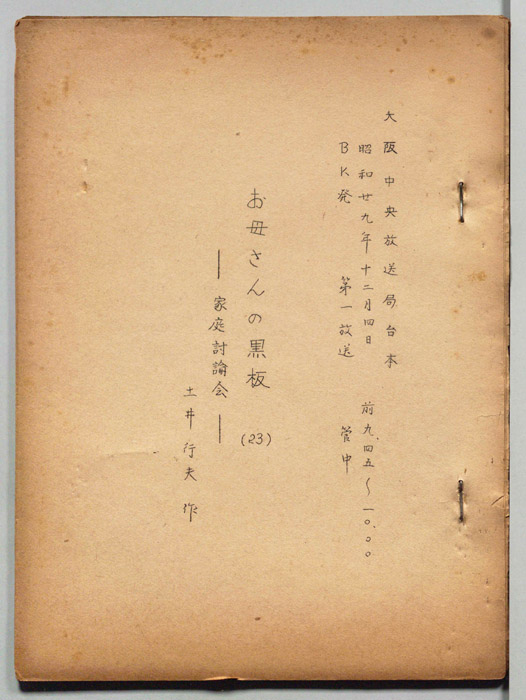 大阪中央放送局台本
昭和廿九年十二月四日 前九、四五〜一〇、〇〇
BK発 第一放送 管中
お母さんの黒板 (23)
― 家庭討論会 ―
土井行夫 作